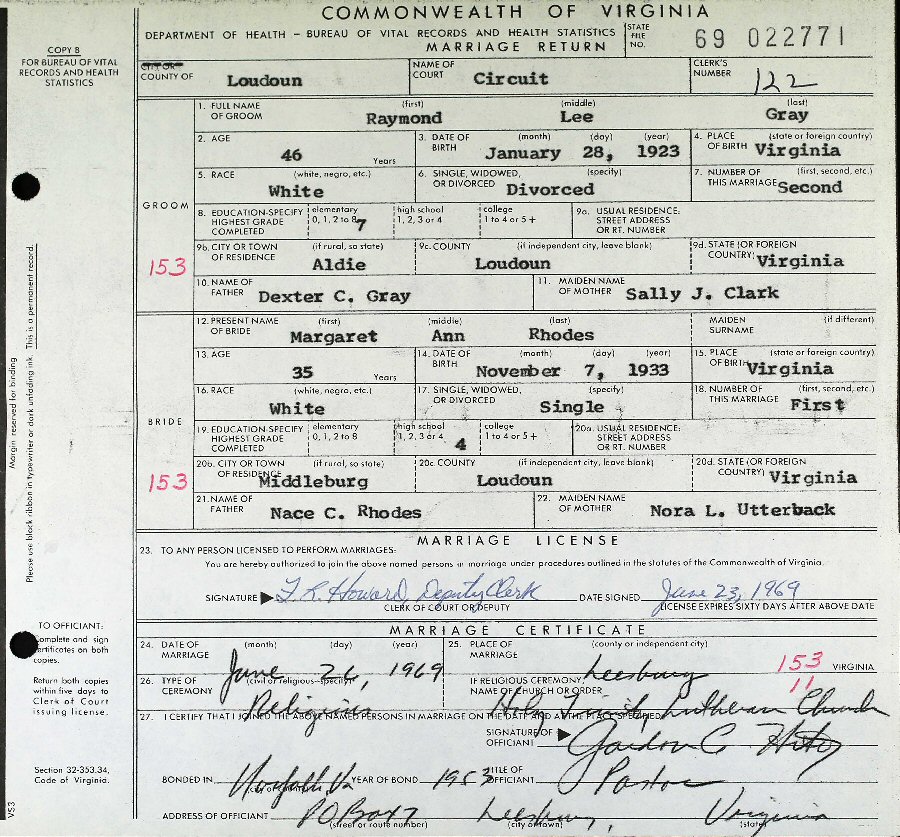 COMMONWEALTH OF VIRGINIA
DEPARTMENT OF HEALTH – BUREAU OF VITAL RECORDS AND HEALTH STATISTICS
MARRIAGE RETURN
STATE FILE NO. 69 022771
COPY B
FOR BUREAU OF VITAL
RECORDS AND HEALTH
STATISTICS
CITY OR
COUNTY OF Loudoun
NAME OF COURT Circuit
CLERK'S NUMBER 122
GROOM
153
1. FULL NAME OF GROOM (first) Raymond (middle) Lee (last) Gray
2. AGE 46 Years
3. DATE OF BIRTH (month) (day) (year) January 28, 1923
4. PLACE OF BIRTH (state or foreign country) Virginia
5. RACE (white, negro, etc.) White
6. SINGLE, WIDOWED, OR DIVORCED (specify) Divorced
7. NUMBER OF THIS MARRIAGE (first, second, etc.) Second
8. EDUCATION-SPECIFY HIGHEST GRADE COMPLETED elementary 0, 1, 2 to 8 7 high school 1, 2, 3 or 4 college 1 to 4 or 5+
9a. USUAL RESIDENCE: STREET ADDRESS OR RT. NUMBER
9b. CITY OR TOWN OF RESIDENCE (if rural, so state) Aldie
9c. COUNTY (if independent city, leave blank) Loudoun
9d. STATE (OR FOREIGN COUNTRY) Virginia
10. NAME OF FATHER Dexter C. Gray
11. MAIDEN NAME OF MOTHER Sally J. Clark
BRIDE
153
12. PRESENT NAME OF BRIDE (first) Margaret (middle) Ann (last) Rhodes
MAIDEN SURNAME (if different)
13. AGE 35 Years
14. DATE OF BIRTH (month) (day) (year) November 7, 1933
15. PLACE OF BIRTH (state or foreign country) Virginia
16. RACE (white, negro, etc.) White
17. SINGLE, WIDOWED, OR DIVORCED (specify) Single
18. NUMBER OF THIS MARRIAGE (first, second, etc.) First
19. EDUCATION-SPECIFY HIGHEST GRADE COMPLETED elementary 0, 1, 2 to 8 high school 1, 2, 3 or 4 4 college 1 to 4 or 5+
20a. USUAL RESIDENCE: STREET ADDRESS OR RT. NUMBER
20b. CITY OR TOWN OF RESIDENCE (if rural, so state) Middleburg
20c COUNTY (if independent city, leave blank) Loudoun
20d. STATE (OR FOREIGN COUNTRY) Virginia
21. NAME OF FATHER Nace C. Rhodes
22. MAIDEN NAME OF MOTHER Nora L. Utterback
MARRIAGE LICENSE
23. TO ANY PERSON LICENSED TO PERFORM MARRIAGES:
You are hereby authorized to join the above named persons in marriage under procedures outlined in the statutes of the Commonwealth of Virginia.
SIGNATURE Howard, Deputy Clerk DATE SIGNED June 23, 1969
CLERK OF COURT OR DEPUTY LICENSE EXPIRES SIXTY DAYS AFTER ABOVE DATE
MARRIAGE CERTIFICATE
24. DATE OF MARRIAGE (month) (day) (year) June 26, 1969
25. PLACE OF MARRIAGE (county or independent city) Leesburg 153 VIRGINIA
26. TYPE OF CEREMONY (civil or religious-specify) Religious
IF RELIGIOUS CEREMONY, NAME OF CHURCH OR ORDER Holy Trinity Lutheran Church 11
27. I CERTIFY THAT I JOINED THE ABOVE NAMED PERSONS IN MARRIAGE ON THE DATE AND AT THE PLACE SPECIFIED
SIGNATURE OF OFFICIAL Gordon C
BONDED IN Va YEAR OF BOND 1953 TITLE OF OFFICIAL Pastor
ADDRESS OF OFFICIAL PO Box 7 Leesburg, Virginia
(street or route number) (city or town) (state)
TO OFFICIAL:
Complete and sign
certificates on both
copies.
Return both copies
within five days to
Clerk of Court
issuing license.
Section 32-353.34,
Code of Virginia.
Margin reserved for binding
Please use black ribbon in typewriter or dark unfading ink. This is a permanent record.
VS3